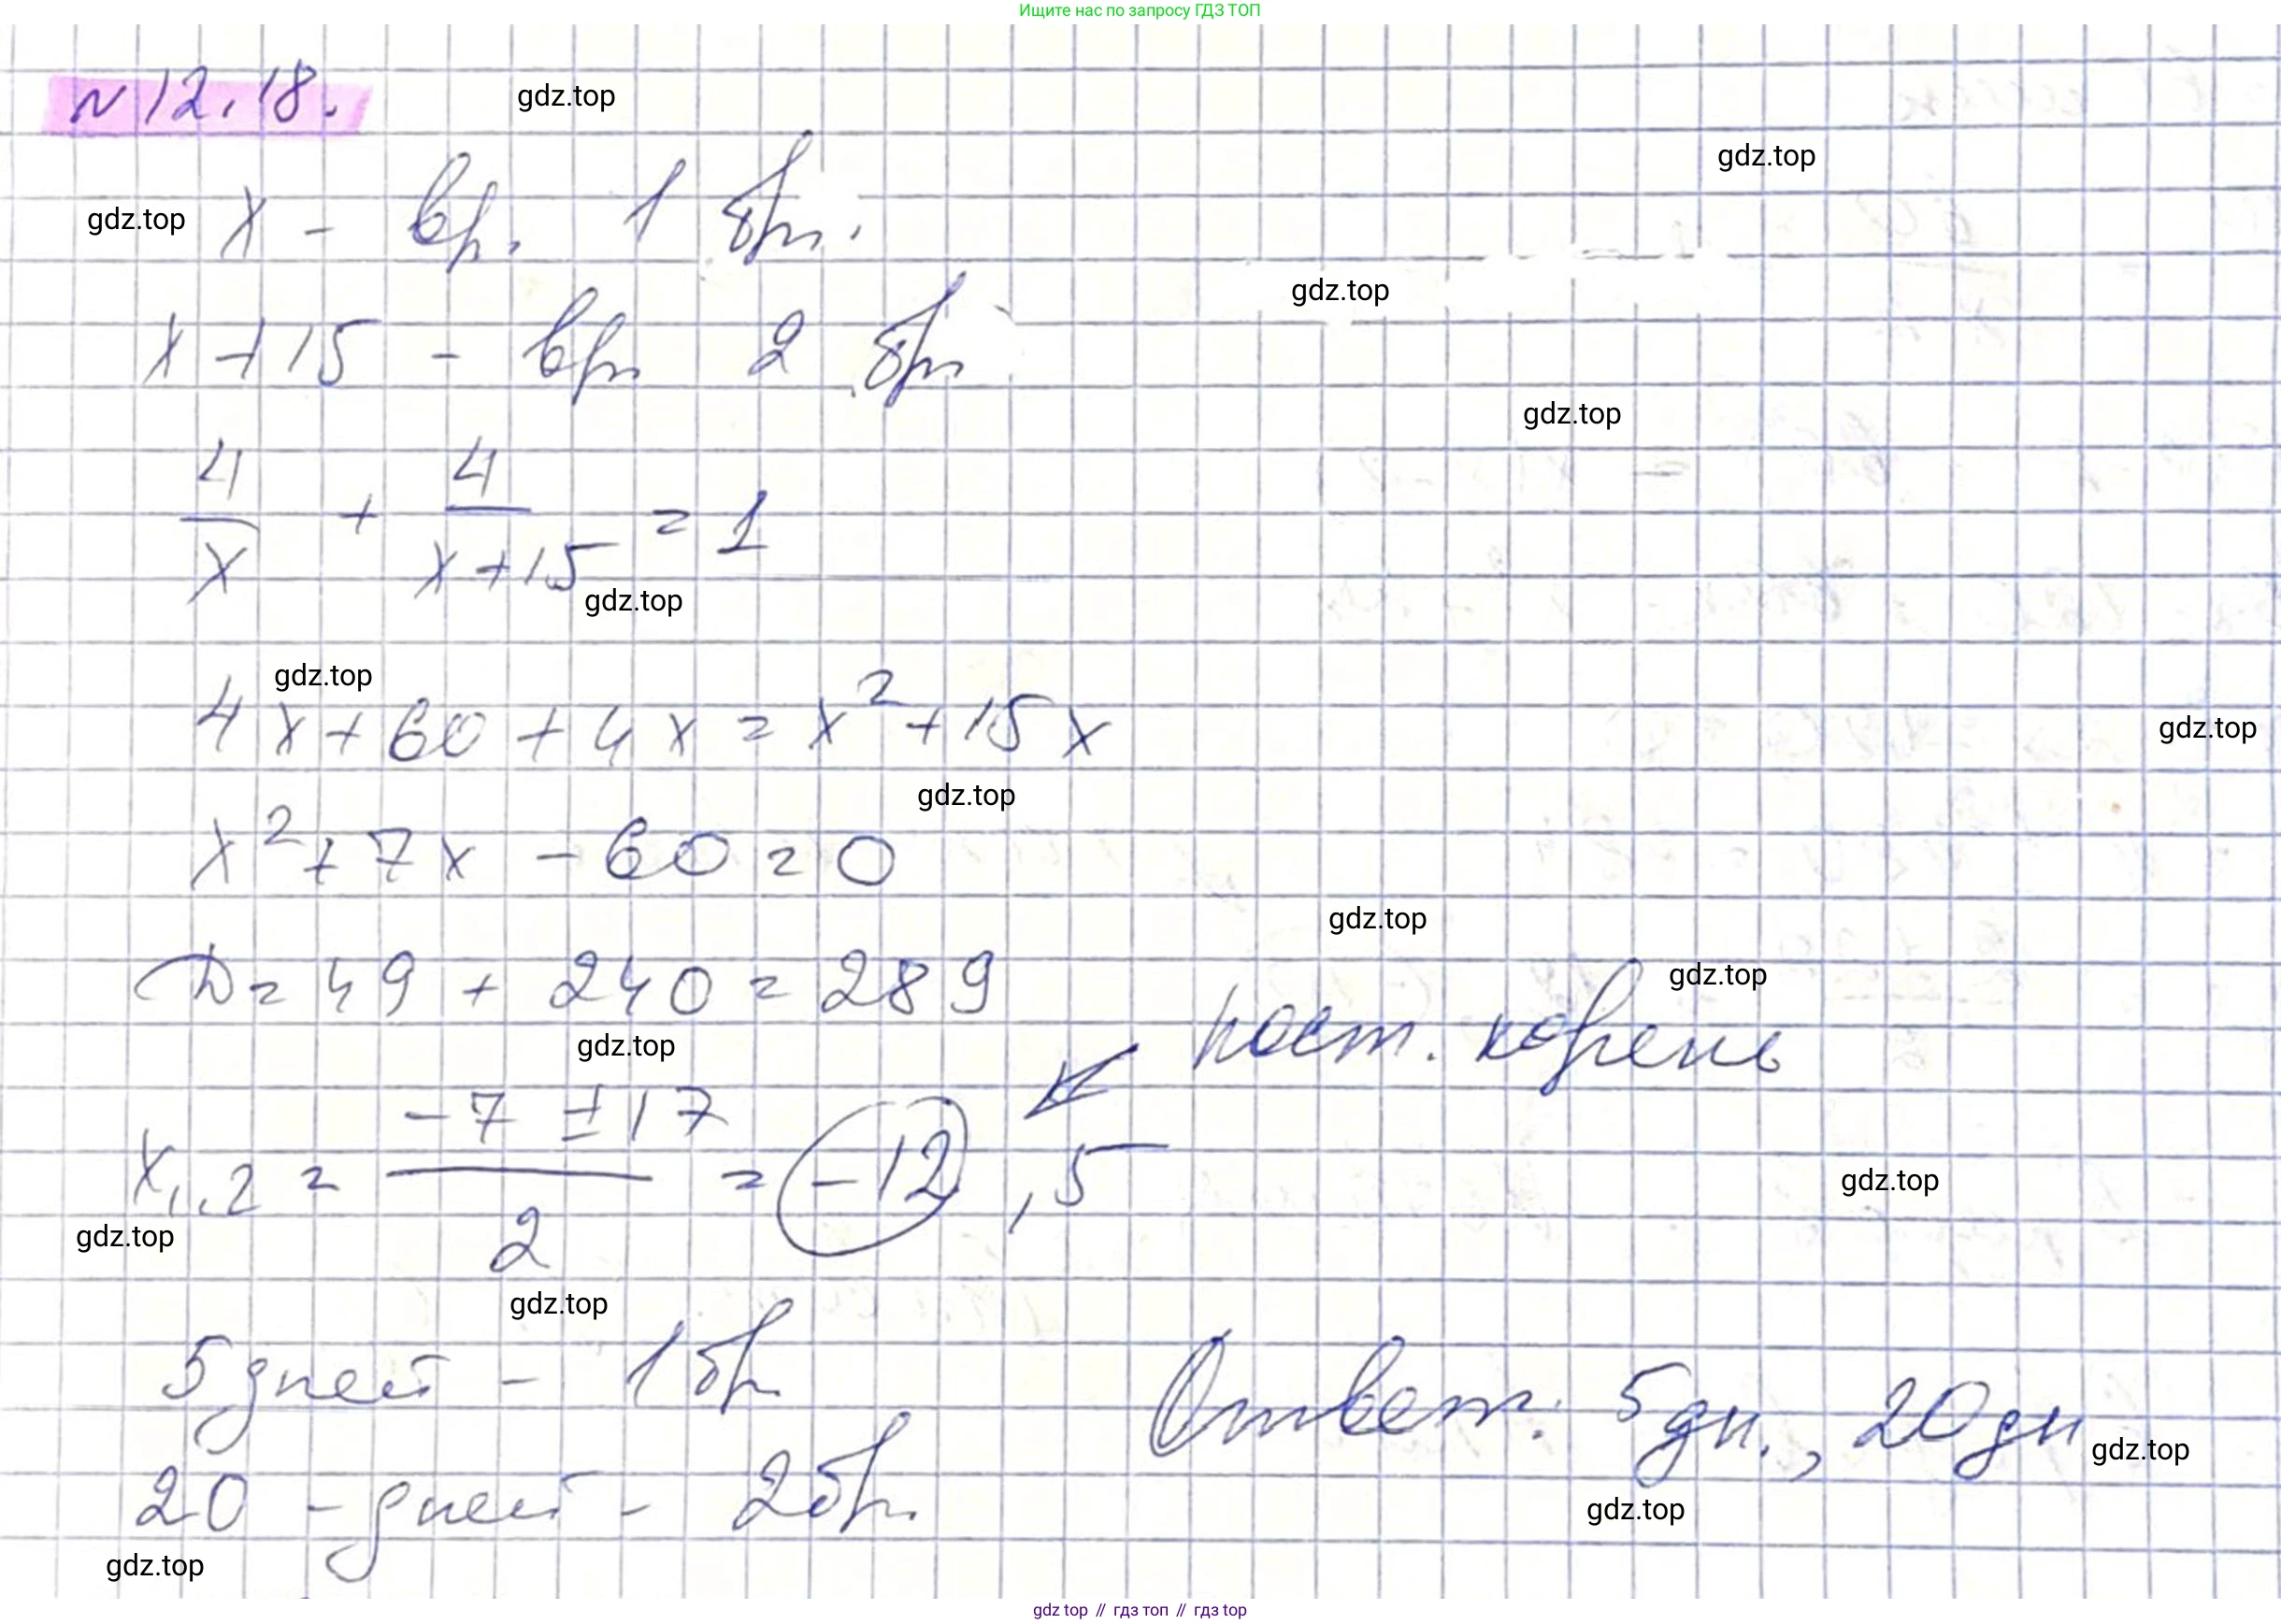 Ищите нас по запросу ГДЗ ТОП
N12.18.
gdz.top
gdz.top
gdz.top
x - вр. 1 бр.
gdz.top
x+15 - вр 2 бр
gdz.top
4/x + 4/(x+15) = 1
gdz.top
gdz.top
4x+60+4x=x²+15x
gdz.top
gdz.top
x²+7x-60=0
gdz.top
D=49+240=289
gdz.top
пост. корень
gdz.top
x1,2 = (-7±17)/2 = -12, 5
gdz.top
gdz.top
gdz.top
5 дней - 1 бр
Ответ: 5 дн., 20 дн
gdz.top
20 - дней - 2 бр.
gdz.top
gdz.top
gdz top // гдз топ // gdz top